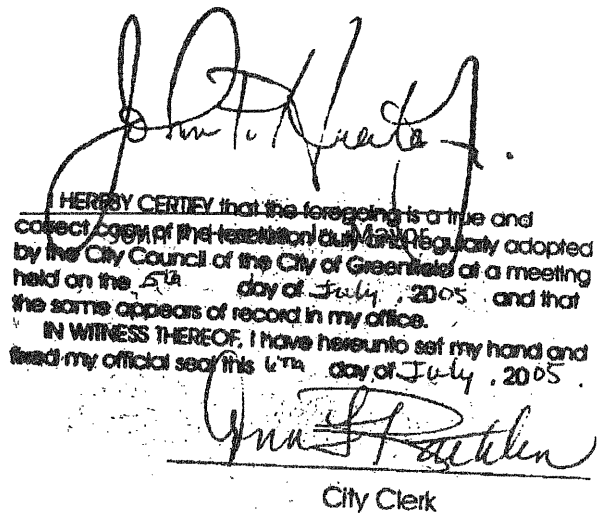 John P. Huerta Jr.
I HEREBY CERTIFY that the foregoing is a true and
correct copy of the resolution duly and regularly adopted
Mayor
by the City Council of the City of Greenfield at a meeting
held on the 5th day of July, 2005 and that
the same appears of record in my office.
IN WITNESS THEREOF, I have hereunto set my hand and
fixed my official seal this 6th day of July, 2005.
Ann
City Clerk